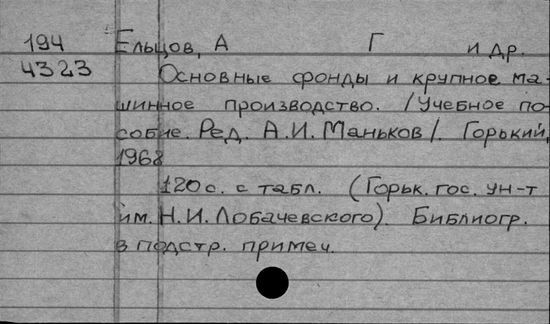 194 Ельцов, А Г и др.
4323 Основные фонды и крупное ма-
шинное производство. /Учебное по-
собие. Ред. А.И. Маньков/. Горький,
1968
120 с. с табл. (Горьк. гос. ун-т
им. Н.И. Лобачевского). Библиогр.
в подстр. примеч.